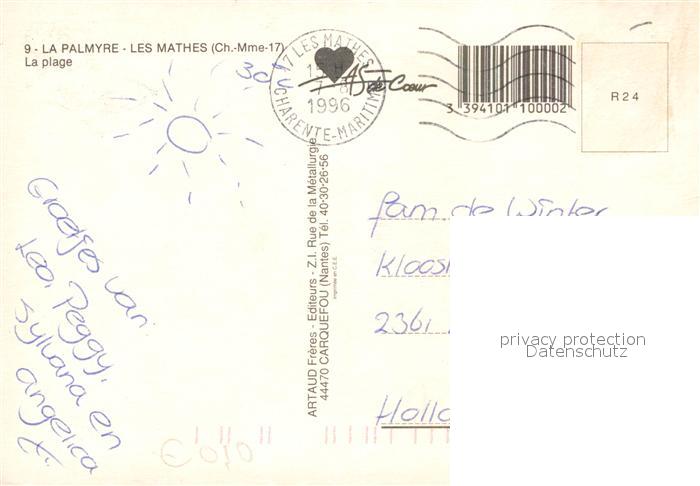 9 - LA PALMYRE - LES MATHES (Ch.-Mme-17)
La plage
30°
17 LES MATHES
1996
CHARENTE-MARITIME
As de Cœur
3 394101 100002
R24
ARTAUD Frères - Editeurs - Z.I. Rue de la Métallurgie
44470 CARQUEFOU (Nantes) Tél. 40-30-26-56
Groetjes van:
Leo, Peggy,
Sylvana en
angelica
Fam. de Winter
Kloos
2361
Hollo
privacy protection
Datenschutz